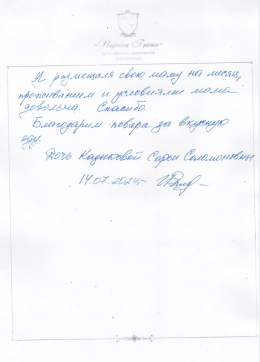 Я размещала свою маму на месяц,
проживанием и условиями мама
довольна. Спасибо
Благодарим повара за вкусную
еду.
Дочь Софьи Соломоновны
14.07.2024г